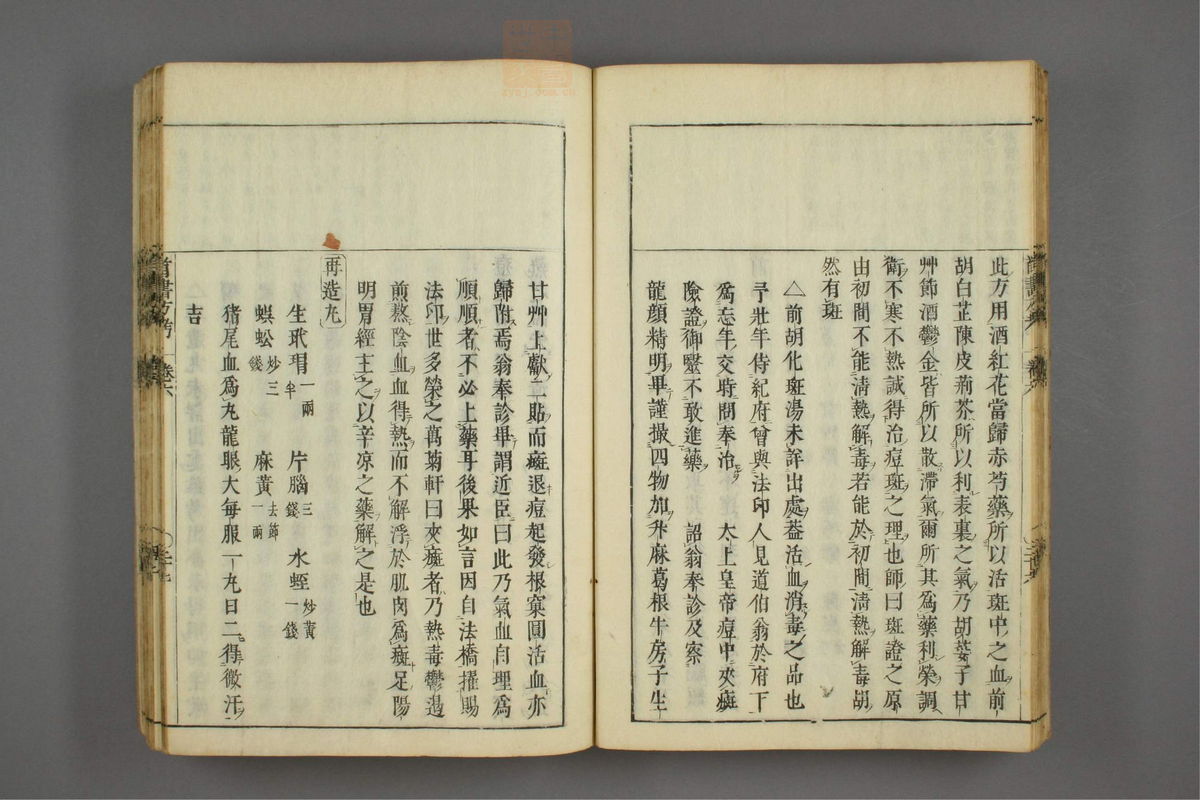 此方用酒紅花當歸赤芍藥所以活斑中之血前
胡白芷陳皮荊芥所以利表裏之氣乃胡荽子甘
艸飾酒鬱金皆所以散滯氣爾所其爲藥利榮調
衛不寒不熱誠得治痘斑之理也師曰斑證之原
由初間不能淸熱解毒若能於初間淸熱解毒胡
然有斑
△前胡化斑湯未詳出處葢活血消毒之品也
予壯年侍紀府曾與法印人見道伯翁於府下
爲忘年交時問奉治太上皇帝痘中夾癍
險證御毉不敢進藥 詔翁奉診及察
龍顏精明畢謹撮四物加升麻葛根牛房子生
甘艸上獻二貼而癍退痘起發根窠圓活血亦
歸附焉翁奉診畢謂近臣曰此乃氣血自理爲
順順者不必上藥耳後果如言因自法橋擢賜
法印世多榮之萬菊軒曰夾癍者乃熱毒鬱遏
煎熬陰血血得熱而不解浮於肌肉爲癍足陽
明胃經主之以辛凉之藥解之是也
再造丸
生玳瑁一兩半 片腦三錢 水蛭炒黃一錢
蜈蚣炒三錢 麻黃去節一兩
猪尾血爲丸龍眼大每服一丸日二得微汗
吉
卷六